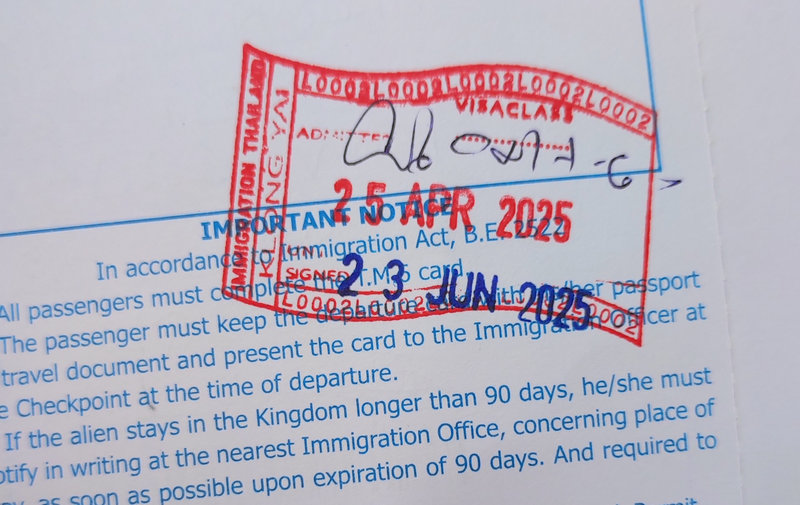 IMMIGRATION THAILAND
KLONG YAI
L0002L0002L0002L0002L0002
VISACLASS
ADMITTED
25 APR 2025
IMPORTANT NOTICE
In accordance to Immigration Act, B.E. 2522
SIGNED
23 JUN 2025
All passengers must complete the T.M.6 card
The passenger must keep the departure card with passport
travel document and present the card to the Immigration officer at
Checkpoint at the time of departure.
If the alien stays in the Kingdom longer than 90 days, he/she must
notify in writing at the nearest Immigration Office, concerning place of
as soon as possible upon expiration of 90 days. And required to